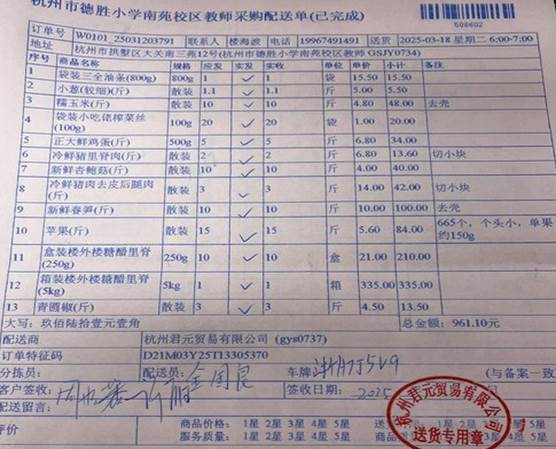 杭州市德胜小学南苑校区教师采购配送单(已完成)
508602
订单号 W0101_25031203791 联系人 楼海波 电话 19967491491 送货 2025-03-18 星期二 6:00-7:00
地址 杭州市拱墅区大关南三苑12号(杭州市德胜小学南苑校区教师 GSJY0734)
商品名称 规格 应发 实发 实收 单位 单价 小计 备注
1 袋装三全油条(800g) 800g 1 1 袋 15.50 15.50
2 小葱(较细)(斤) 散装 1.1 1.1 斤 5.00 5.50
3 糯玉米(斤) 散装 10 10 斤 4.80 48.00 去壳
4 袋装小吃佬榨菜丝(100g) 100g 20 20 袋 1.00 20.00
5 正大鲜鸡蛋(斤) 500g 5 5 斤 6.80 34.00
6 冷鲜猪里脊肉(斤) 散装 2 2 斤 6.80 13.60 切小块
7 新鲜杏鲍菇(斤) 散装 10 10 斤 4.00 40.00
8 冷鲜猪肉去皮后腿肉(斤) 散装 3 3 斤 14.00 42.00 切小块
9 新鲜春笋(斤) 散装 10 10 斤 10.00 100.00 去壳
10 苹果(斤) 散装 15 15 斤 5.60 84.00 665个，个头小，单果约150g
11 盒装楼外楼糖醋里脊(250g) 250g 10 10 盒 21.00 210.00
12 箱装楼外楼糖醋里脊(5kg) 5kg 1 1 箱 335.00 335.00
13 青圆椒(斤) 散装 3 3 斤 4.50 13.50
大写：玖佰陆拾壹元壹角 总金额：961.10元
配送商 杭州君元贸易有限公司 (gys0737)
订单特征码 D21M03Y25T13305370
分拣员： 配送员： 车牌 (与备案一致)
客户签收： 金国良 签收日期： 2025
配送留言：
评价 商品价格： 1星 2星 3星 4星 5星
服务质量： 1星 2星 3星 4星 5星
杭州君元贸易有限公司
送货专用章